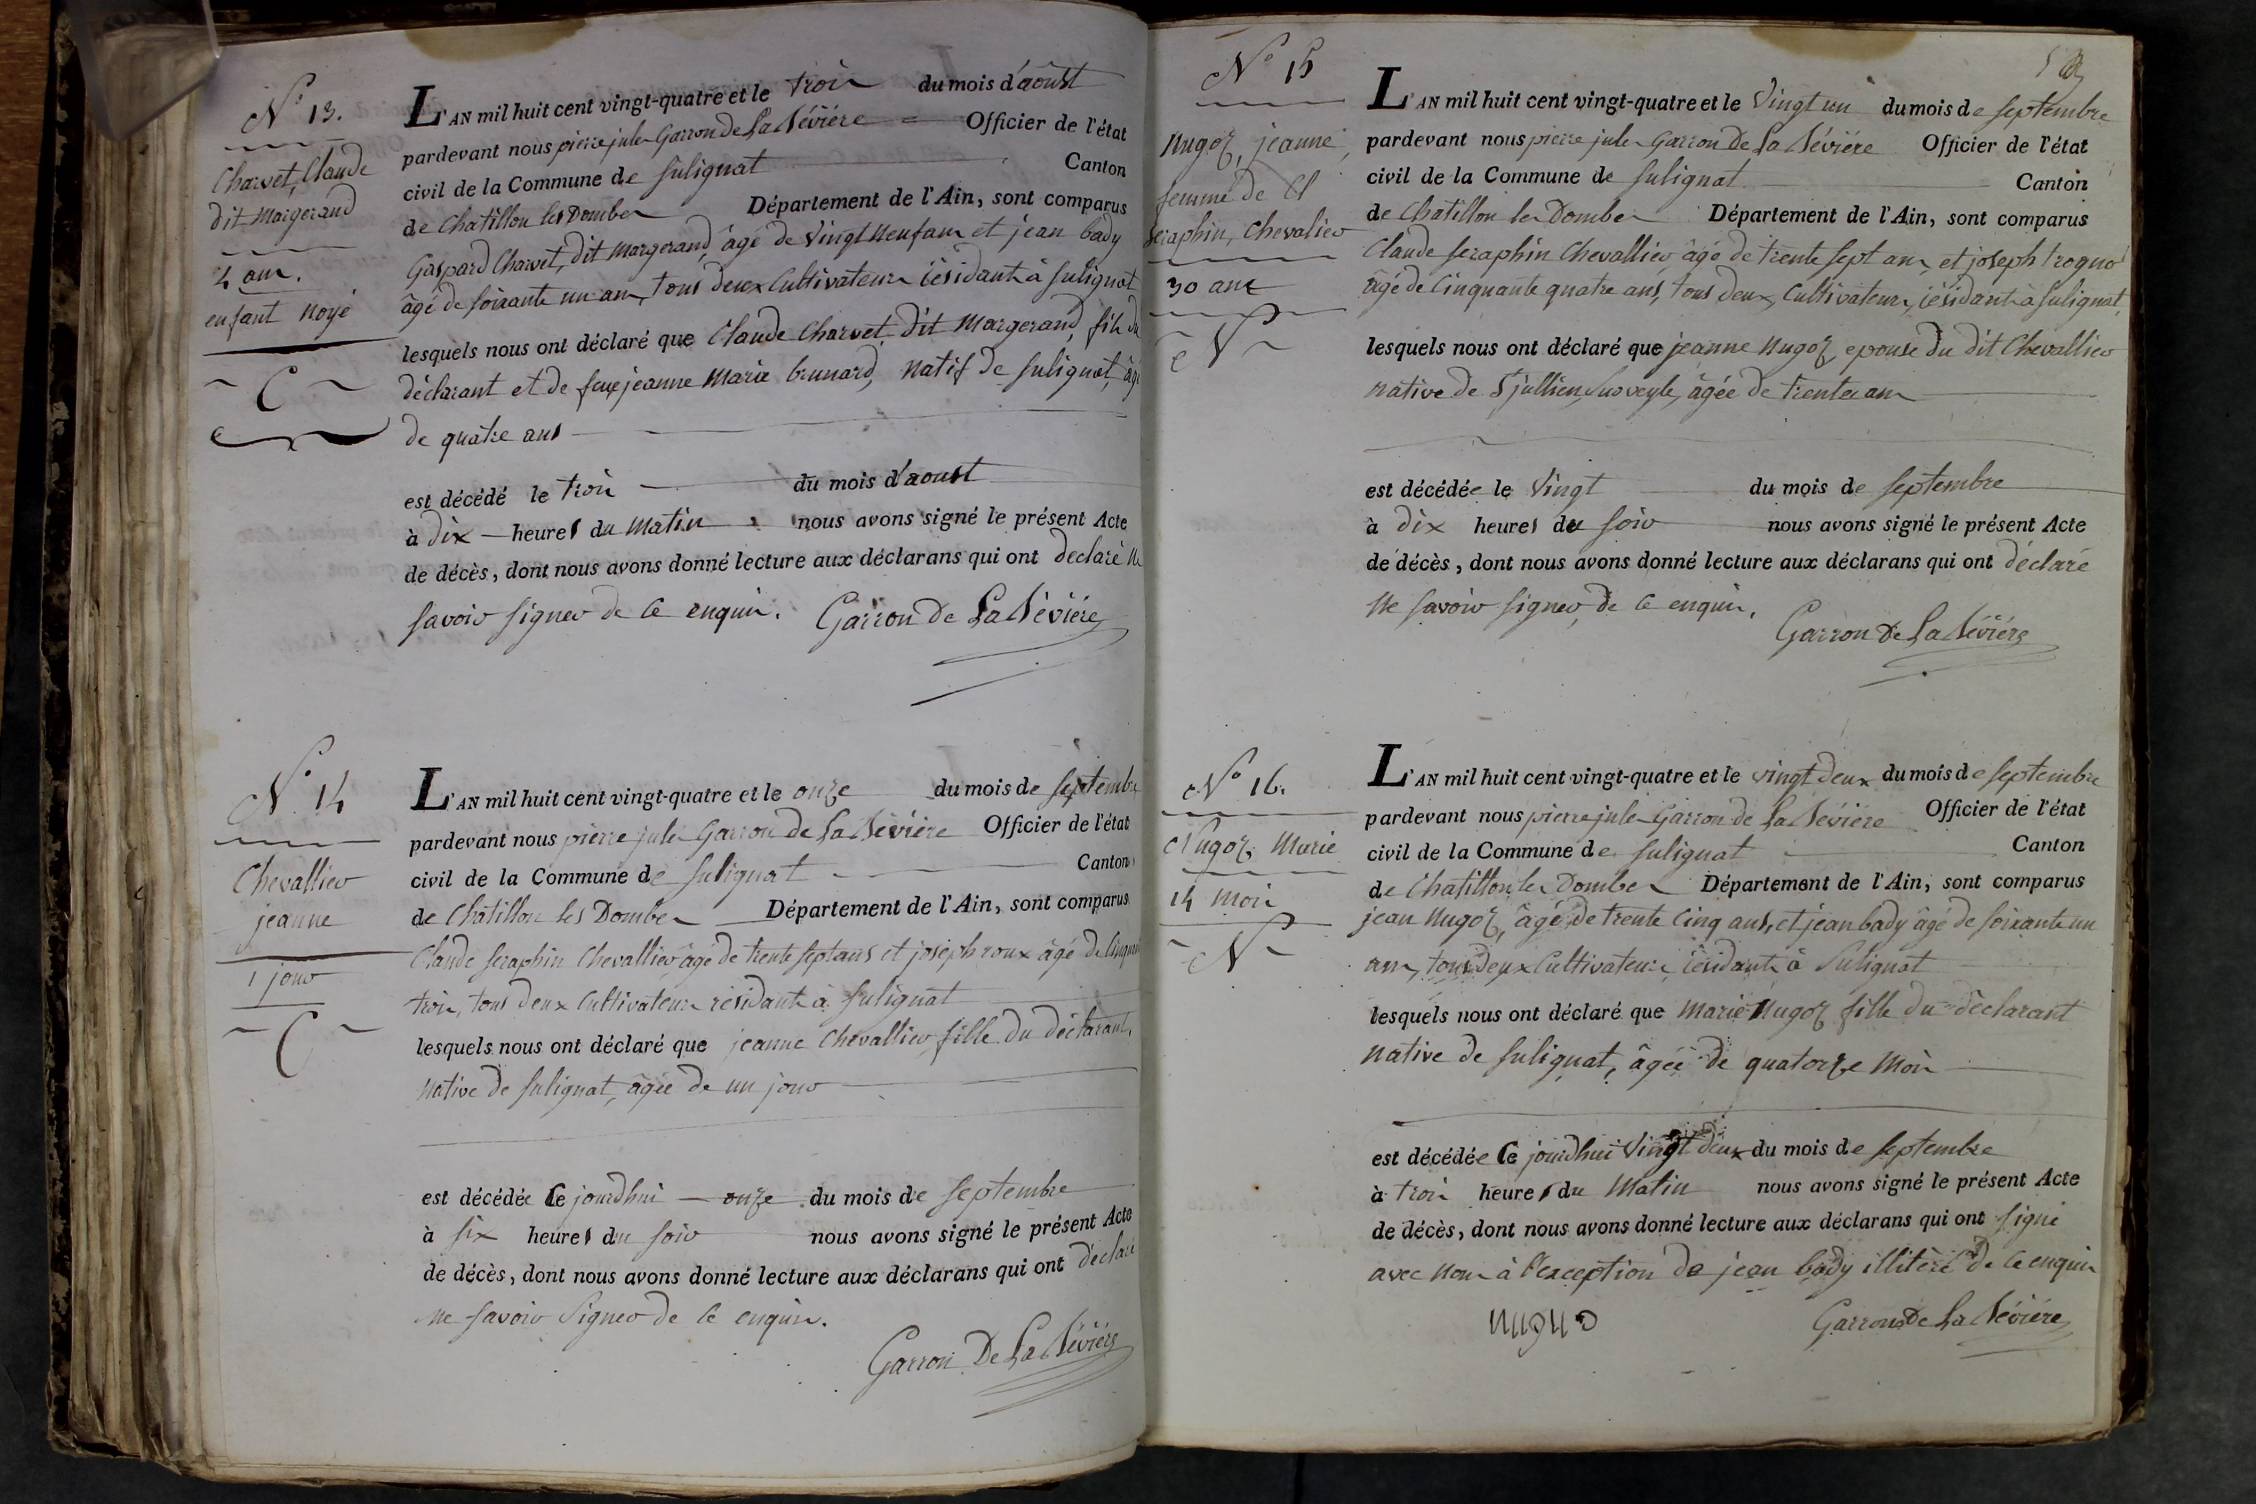 N° 13.
Charvet, Claude
dit Margerand
4 ans.
enfant noyé
C
L'AN mil huit cent vingt-quatre et le trois du mois d'aoust
pardevant nous pierre jules Garron De La Bévière Officier de l'état
civil de la Commune de Sulignat Canton
de Chatillon les Dombes Département de l'Ain, sont comparus
Gaspard Charvet, dit Margerand, âgé de vingt neuf ans et jean bady
âgé de soixante un ans, tous deux Cultivateurs résidants à Sulignat
lesquels nous ont déclaré que Claude Charvet dit Margerand, fils du
déclarant et de feue jeanne Marie brunard, natif de Sulignat, âgé
de quatre ans
est décédé le trois du mois d'aoust
à dix heures du matin nous avons signé le présent Acte
de décès, dont nous avons donné lecture aux déclarans qui ont declaré ne
savoir signer de ce enquis. Garron De La Bévière
N° 14
Chevallier
jeanne
1 jour
C
L'AN mil huit cent vingt-quatre et le onze du mois de septembre
pardevant nous pierre jules Garron De La Bévière Officier de l'état
civil de la Commune de Sulignat Canton
de Chatillon les Dombes Département de l'Ain, sont comparus
Claude Seraphin Chevallier âgé de trente sept ans et joseph roux âgé de Cinquante
trois, tous deux Cultivateurs résidants à Sulignat
lesquels nous ont déclaré que jeanne Chevallier, fille du déclarant,
native de Sulignat, âgée de un jour
est décédée Ce jourdhui onze du mois de septembre
à six heures du soir nous avons signé le présent Acte
de décès, dont nous avons donné lecture aux déclarans qui ont déclaré
ne savoir signer de ce enquis.
Garron De La Bévière
N° 15
Nugoz, jeanne,
femme de Cl
seraphin, Chevalier
30 ans
N
L'AN mil huit cent vingt-quatre et le vingt un du mois de septembre
pardevant nous pierre jules Garron De La Bévière Officier de l'état
civil de la Commune de Sulignat Canton
de Chatillon les Dombes Département de l'Ain, sont comparus
Claude Seraphin Chevallier âgé de trente sept ans, et joseph
âgé de Cinquante quatre ans, tous deux Cultivateurs, résidants à Sulignat,
lesquels nous ont déclaré que jeanne Nugoz epouse du dit Chevallier
native de St jullien sur veyle, âgée de trente ans
est décédée le vingt du mois de septembre
à dix heures du soir nous avons signé le présent Acte
de décès, dont nous avons donné lecture aux déclarans qui ont déclaré
ne savoir signer, de ce enquis.
Garron De La Bévière
N° 16.
Nugoz, Marie
14 mois
N
L'AN mil huit cent vingt-quatre et le vingt deux du mois de septembre
pardevant nous pierre jules Garron de La Bévière Officier de l'état
civil de la Commune de Sulignat Canton
de Chatillon les Dombes Département de l'Ain, sont comparus
jean Nugoz, âgé de trente Cinq ans, et jean bady âgé de soixante un
ans, tous deux Cultivateurs, résidants à Sulignat
lesquels nous ont déclaré que Marie Nugoz fille du déclarant
native de Sulignat, âgée de quatorze mois
est décédée Ce jourdhui vingt deux du mois de septembre
à trois heures du matin nous avons signé le présent Acte
de décès, dont nous avons donné lecture aux déclarans qui ont signé
avec nous à l'exception de jean bady illitéré de ce enquis
Garron De La Bévière